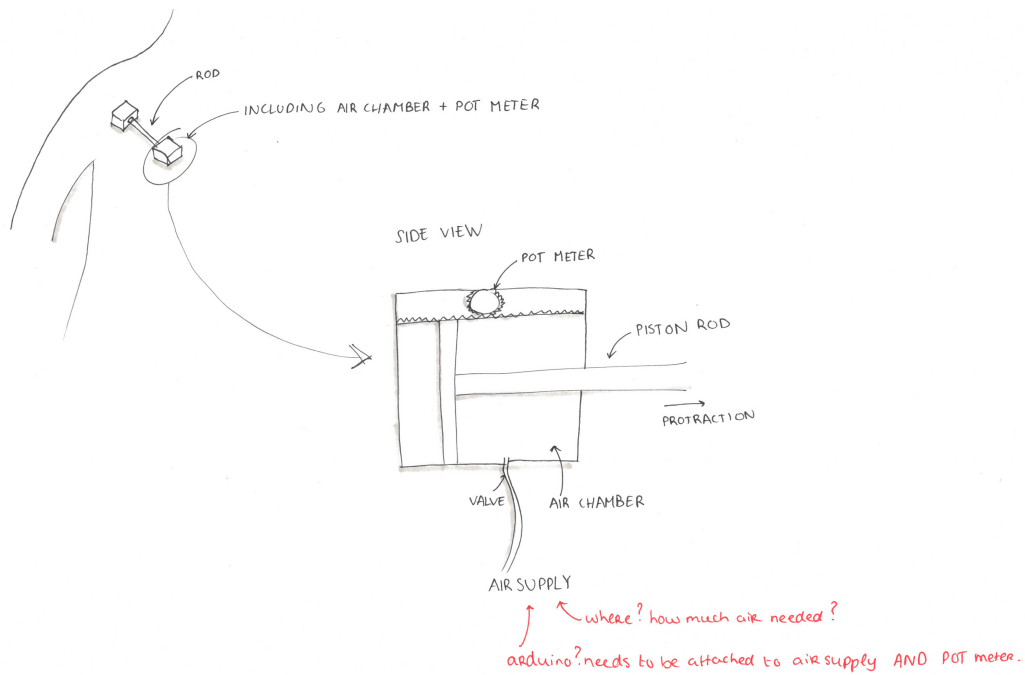 ROD
INCLUDING AIR CHAMBER + POT METER
SIDE VIEW
POT METER
PISTON ROD
PROTRACTION
VALVE
AIR CHAMBER
AIR SUPPLY
where? how much air needed?
arduino? needs to be attached to air supply AND POT meter.